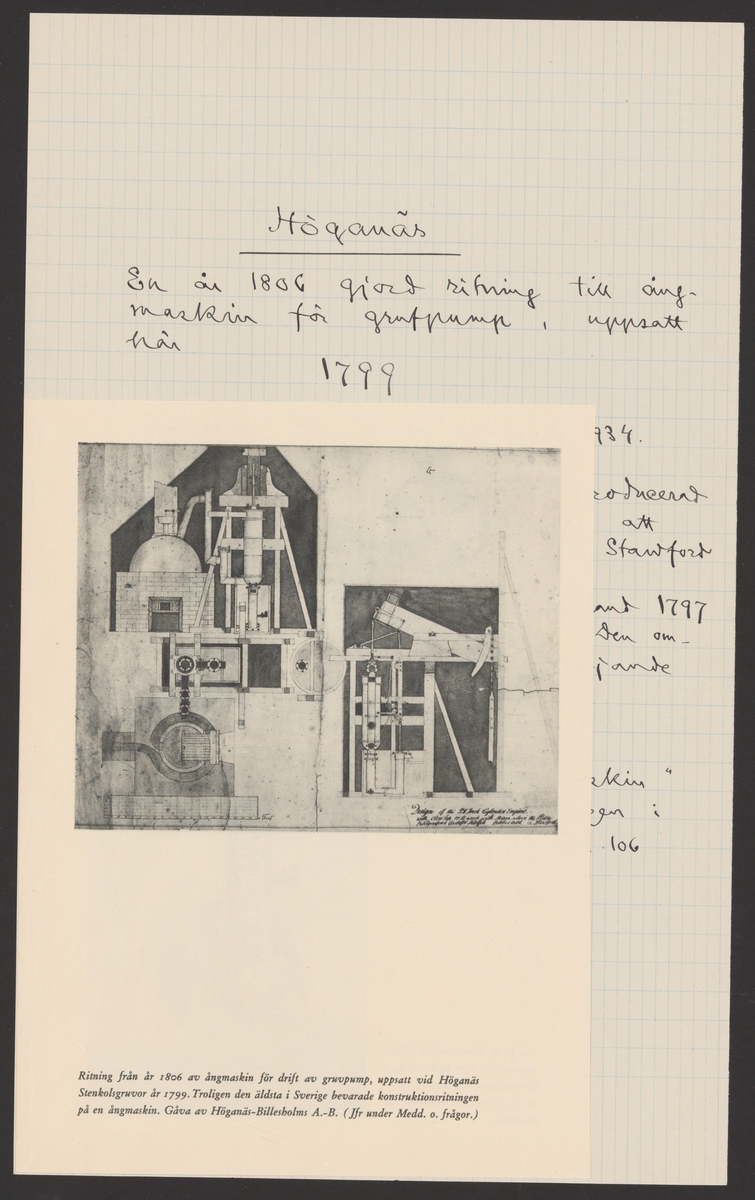 Höganäs
En år 1806 gjord ritning till ång-
maskin för grufpump, uppsatt
här
1799
934.
roducerad
att
Stawford
and 1797
Den om-
jande
skin"
gen i
106
Design of the Inch Cylinder Engine
Ritning från år 1806 av ångmaskin för drift av gruvpump, uppsatt vid Höganäs
Stenkolsgruvor år 1799. Troligen den äldsta i Sverige bevarade konstruktionsritningen
på en ångmaskin. Gåva av Höganäs-Billesholms A.-B. (Jfr under Medd. o. frågor.)